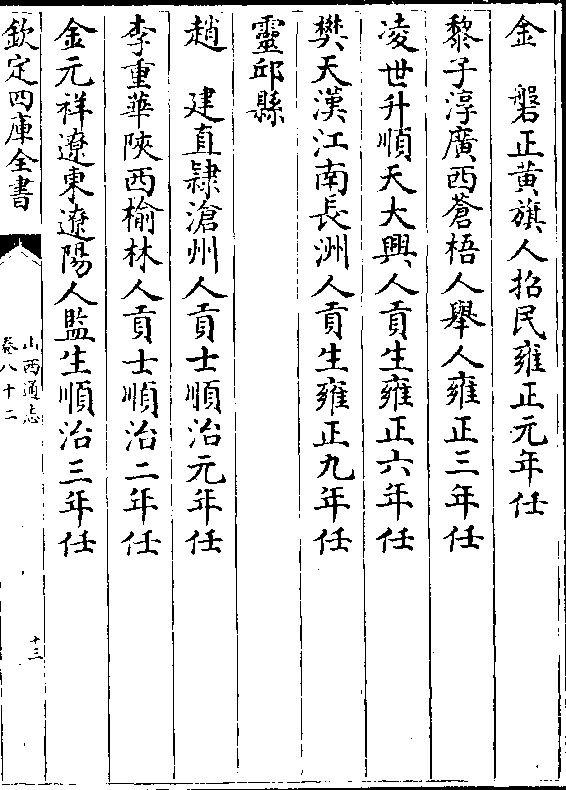 金　磐正黃旗人招民雍正元年任
黎子淳廣西蒼梧人舉人雍正三年任
凌世升順天大興人貢生雍正六年任
樊天漢江南長洲人貢生雍正九年任
靈邱縣
趙　建直隸滄州人貢士順治元年任
李重華陝西榆林人貢士順治二年任
金元祥遼東遼陽人監生順治三年任
欽定四庫全書
山西通志
卷八十二
十三